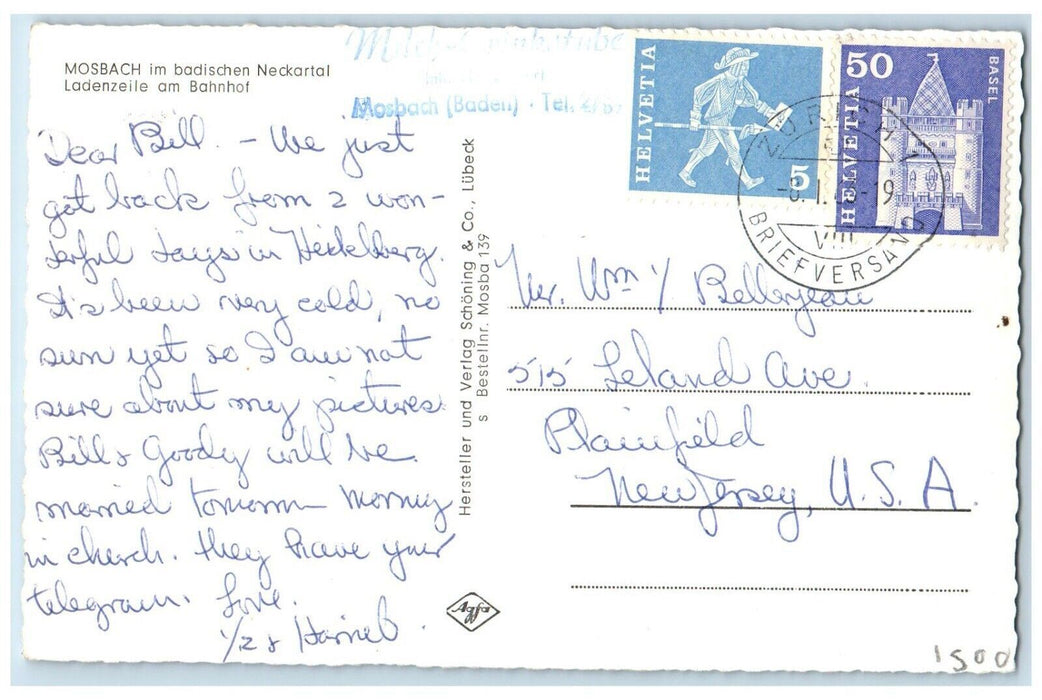 MOSBACH im badischen Neckartal
Ladenzeile am Bahnhof
Mosbach (Baden) · Tel.
HELVETIA
5
50
BASEL
HELVETIA
ZÜRICH 1
VIII
BRIEFVERSAND
Dear Bill. - We just
got back from 2 won-
derful days in Heidelberg.
It's been very cold, no
sun yet so I am not
sure about my pictures.
Bill & Goody will be
married tomorrow morning
in church. They have your
telegram. Love.
Hersteller und Verlag Schöning & Co., Lübeck
s Bestellnr. Mosba 139
Agfa
Mr. Wm
515 Leland Ave.
Plainfield
New Jersey, U.S.A.
1500